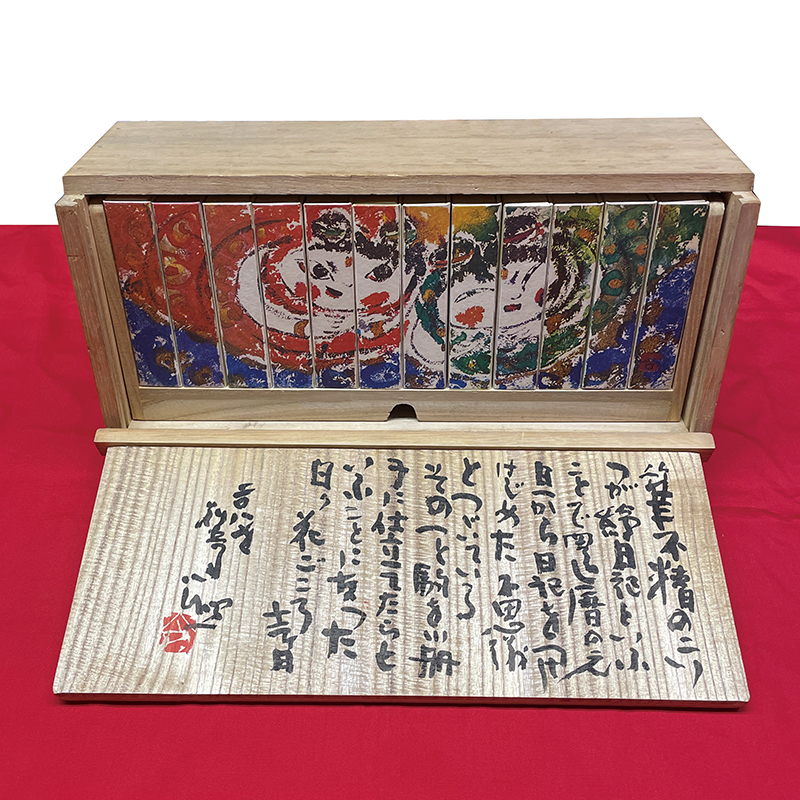 筆不精のこい
つが絵日記といふ
ことで暦の元
旦から日記を
はじめた不思議
とつづいている
その一と駒を小冊
子に仕立てたらと
いふことになった
日々花ごころ